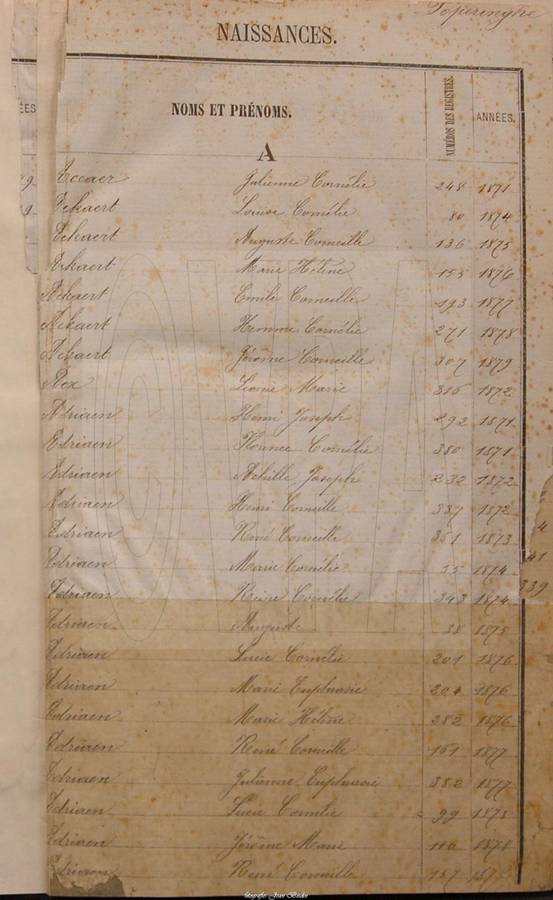 Poperinghe
NAISSANCES.
ÉES
NOMS ET PRÉNOMS.
NUMÉROS DES REGISTRES.
ANNÉES.
A
Accaer Julienne Cornélie 248 1871
Ackaert Louise Cornélie 80 1874
Ackaert Auguste Corneille 136 1875
Ackaert Marie Hélène 155 1876
Ackaert Emile Corneille 193 1877
Ackaert Hemme Cornélie 271 1878
Ackaert Jérôme Corneille 307 1879
Aex Léonie Marie 316 1872
Adriaen Henri Joseph 292 1871
Adriaen Florence Cornélie 380 1871
Adriaen Achille Joseph 232 1872
Adriaen Henri Corneille 387 1872
Adriaen René Corneille 361 1873
Adriaen Marie Cornélie 55 1874
Adriaen Reine Cornélie 343 1874
Adriaen Auguste 38 1875
Adriaen Lucie Cornélie 201 1876
Adriaen Marie Euphrasie 204 1876
Adriaen Marie Hélène 282 1876
Adriaen René Corneille 151 1877
Adriaen Julienne Euphrasie 382 1877
Adriaen Lucie Cornélie 99 1878
Adriaen Jérôme Marie 110 1878
Adriaen René Corneille 157
4
41
339